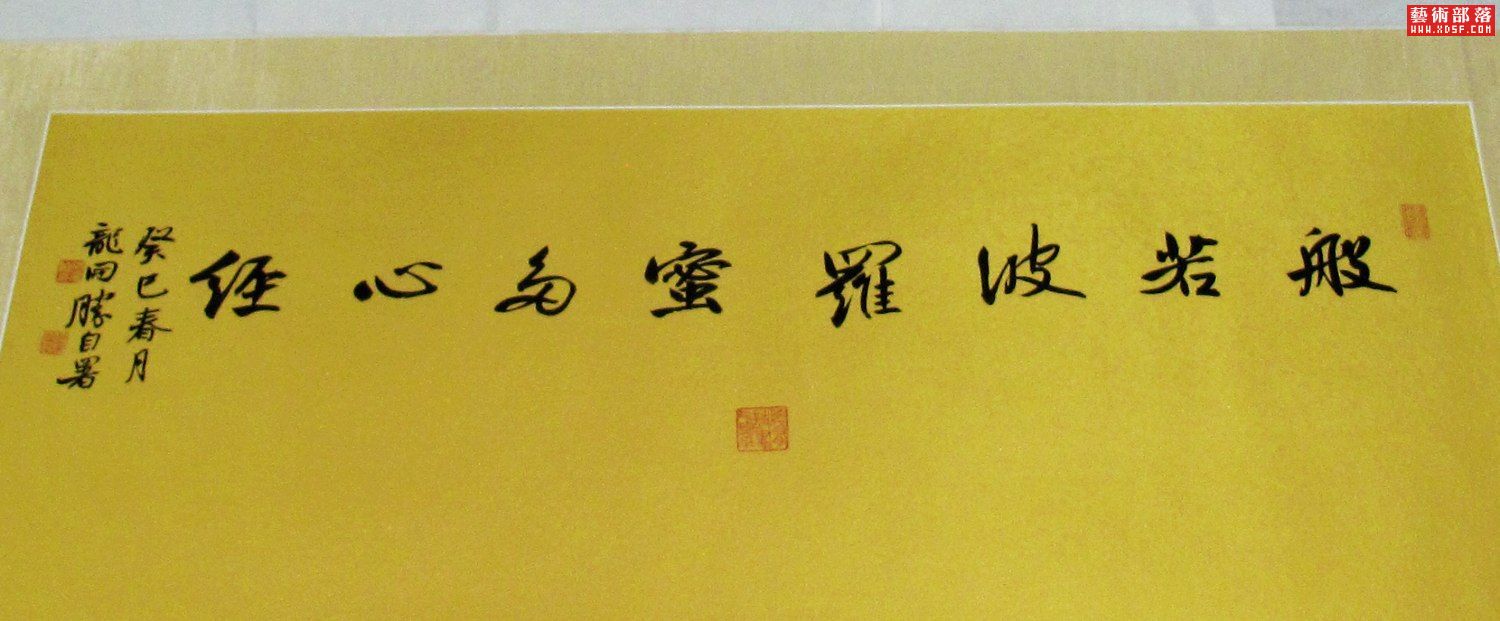 般若波羅蜜多心經
癸巳春月
龍回勝自署
藝術部落
WWW.XDSF.COM